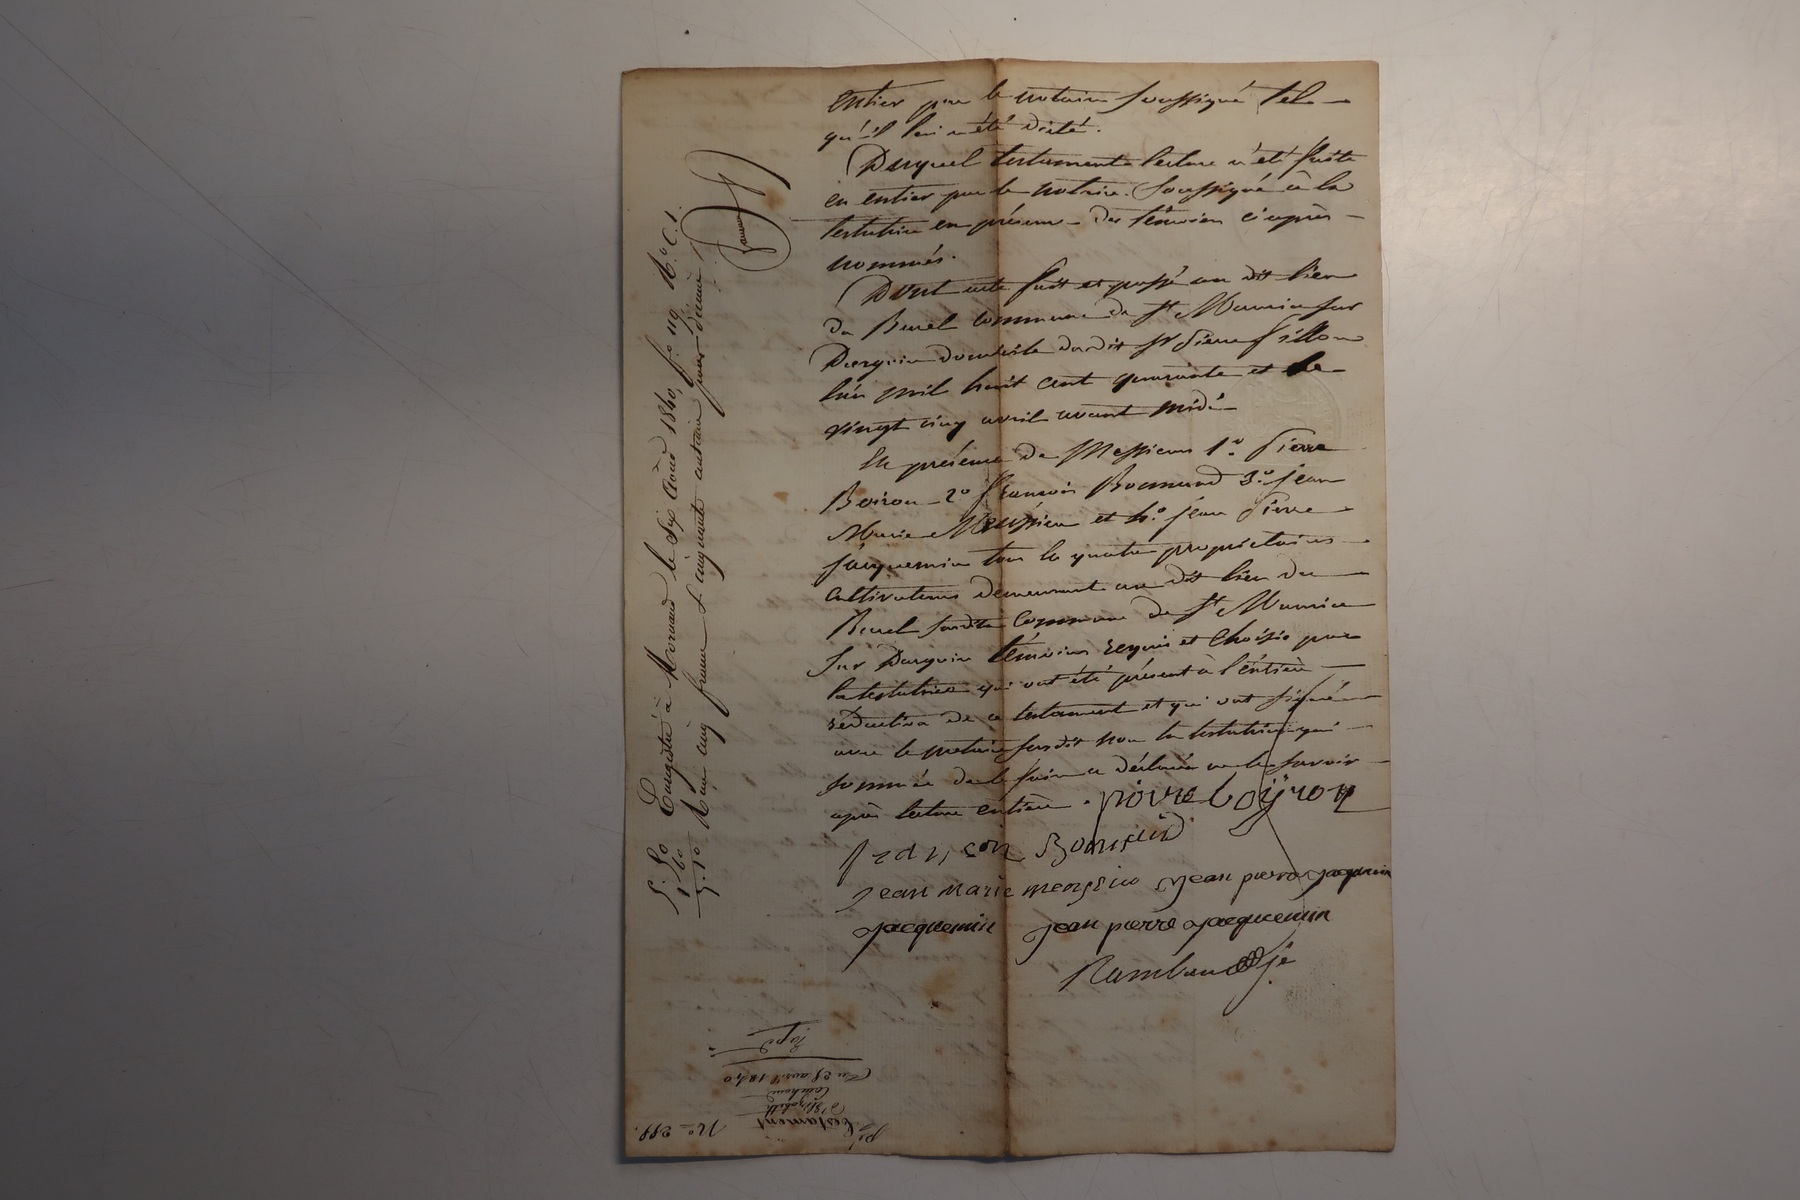 entier par le notaire soussigné tel
qu'il lui a été dicté.
Duquel testament lecture a été faite
en entier par le notaire soussigné à la
testatrice en présence des témoins ci après
nommés.
Dont acte fait et passé au dit lieu
du Bruel commune de St Maurice sur
Dargoire domicile du dit Sr Pierre Fillon
l'an mil huit cent quarante et le
vingt cinq avril avant midi
En présence de Messieurs 1º Pierre
Boiron 2º François Bonnand 3º jean
Marie et 4º jean Pierre
jacquemin tous les quatre propriétaires
cultivateurs demeurant au dit lieu du
Bruel susdite commune de St Maurice
sur Dargoire témoins requis et choisis par
la testatrice qui ont été présent à l'entière
rédaction de ce testament et qui ont signé
avec le notaire susdit non la testatrice qui
sommée de le faire a déclaré ne le savoir
après lecture entière. pierre boÿron
françois Bonnand
jean marie jean pierre jacquemin
jacquemin jean pierre jacquemin
Rambaud
Enregistré à Mornand le six Août 1840, fº 119 Rº C. 1.
Reçu cinq francs & cinquante centimes pour décime
5. 50
Nº 288.
testament
d'Elizabeth
Du 25 avril 1840